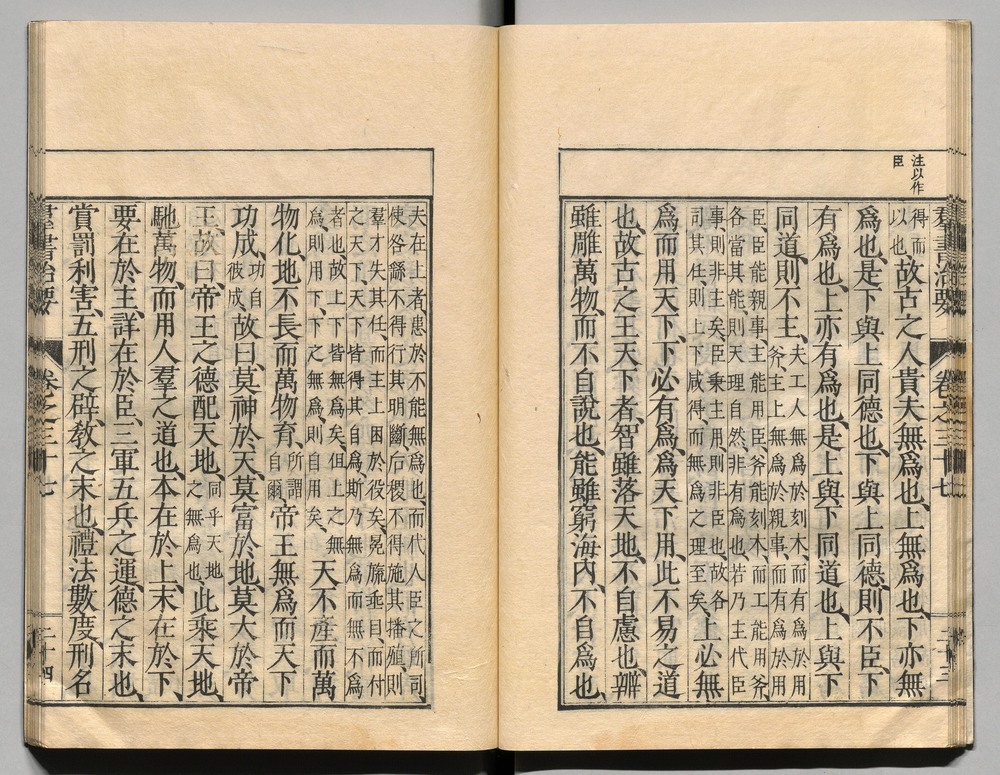 注以作
臣
羣書治要 卷之三十七 二十三
得而
以也故古之人貴夫無爲也、上無爲也、下亦無
爲也、是下與上同德也、下與上同德、則不臣、下
有爲也、上亦有爲也、是上與下同道也、上與下
同道、則不主、夫工人無爲於刻木、而有爲於用
斧、主上無爲於親事、而有爲於用
臣、臣能親事、主能用臣、斧能刻木、而工能用斧、
各當其能、則天理自然、非有爲也、若乃主代臣
事、則非主矣、臣秉主用、則非臣也、故各
司其任、則上下咸得、而無爲之理至矣、上必無
爲而用天下、下必有爲、爲天下用、此不易之道
也、故古之王天下者、智雖落天地、不自慮也、辯
雖雕萬物、而不自說也、能雖窮海內、不自爲也、
夫在上者、患於不能無爲也、而代人臣之所司、
使咎繇不得行其明斷、后稷不得施其播殖、則
羣才失其任、而主上困於役矣、冕旒垂目、而付
之天下、天下皆得其自爲、斯乃無爲而無不爲
者也、故上下皆無爲矣、但上之無
爲、則用下、下之無爲、則自用矣、天不產而萬
物化、地不長而萬物育、所謂
自爾帝王無爲而天下
功成、功自
彼成故曰、莫神於天、莫富於地、莫大於帝
王、故曰、帝王之德配天地、同乎天地
之無爲也此乘天地、
馳萬物、而用人羣之道也、本在於上、末在於下、
要在於主、詳在於臣、三軍五兵之運、德之末也、
賞罰利害、五刑之辟、敎之末也、禮法數度、刑名
羣書治要 卷之三十七 二十四